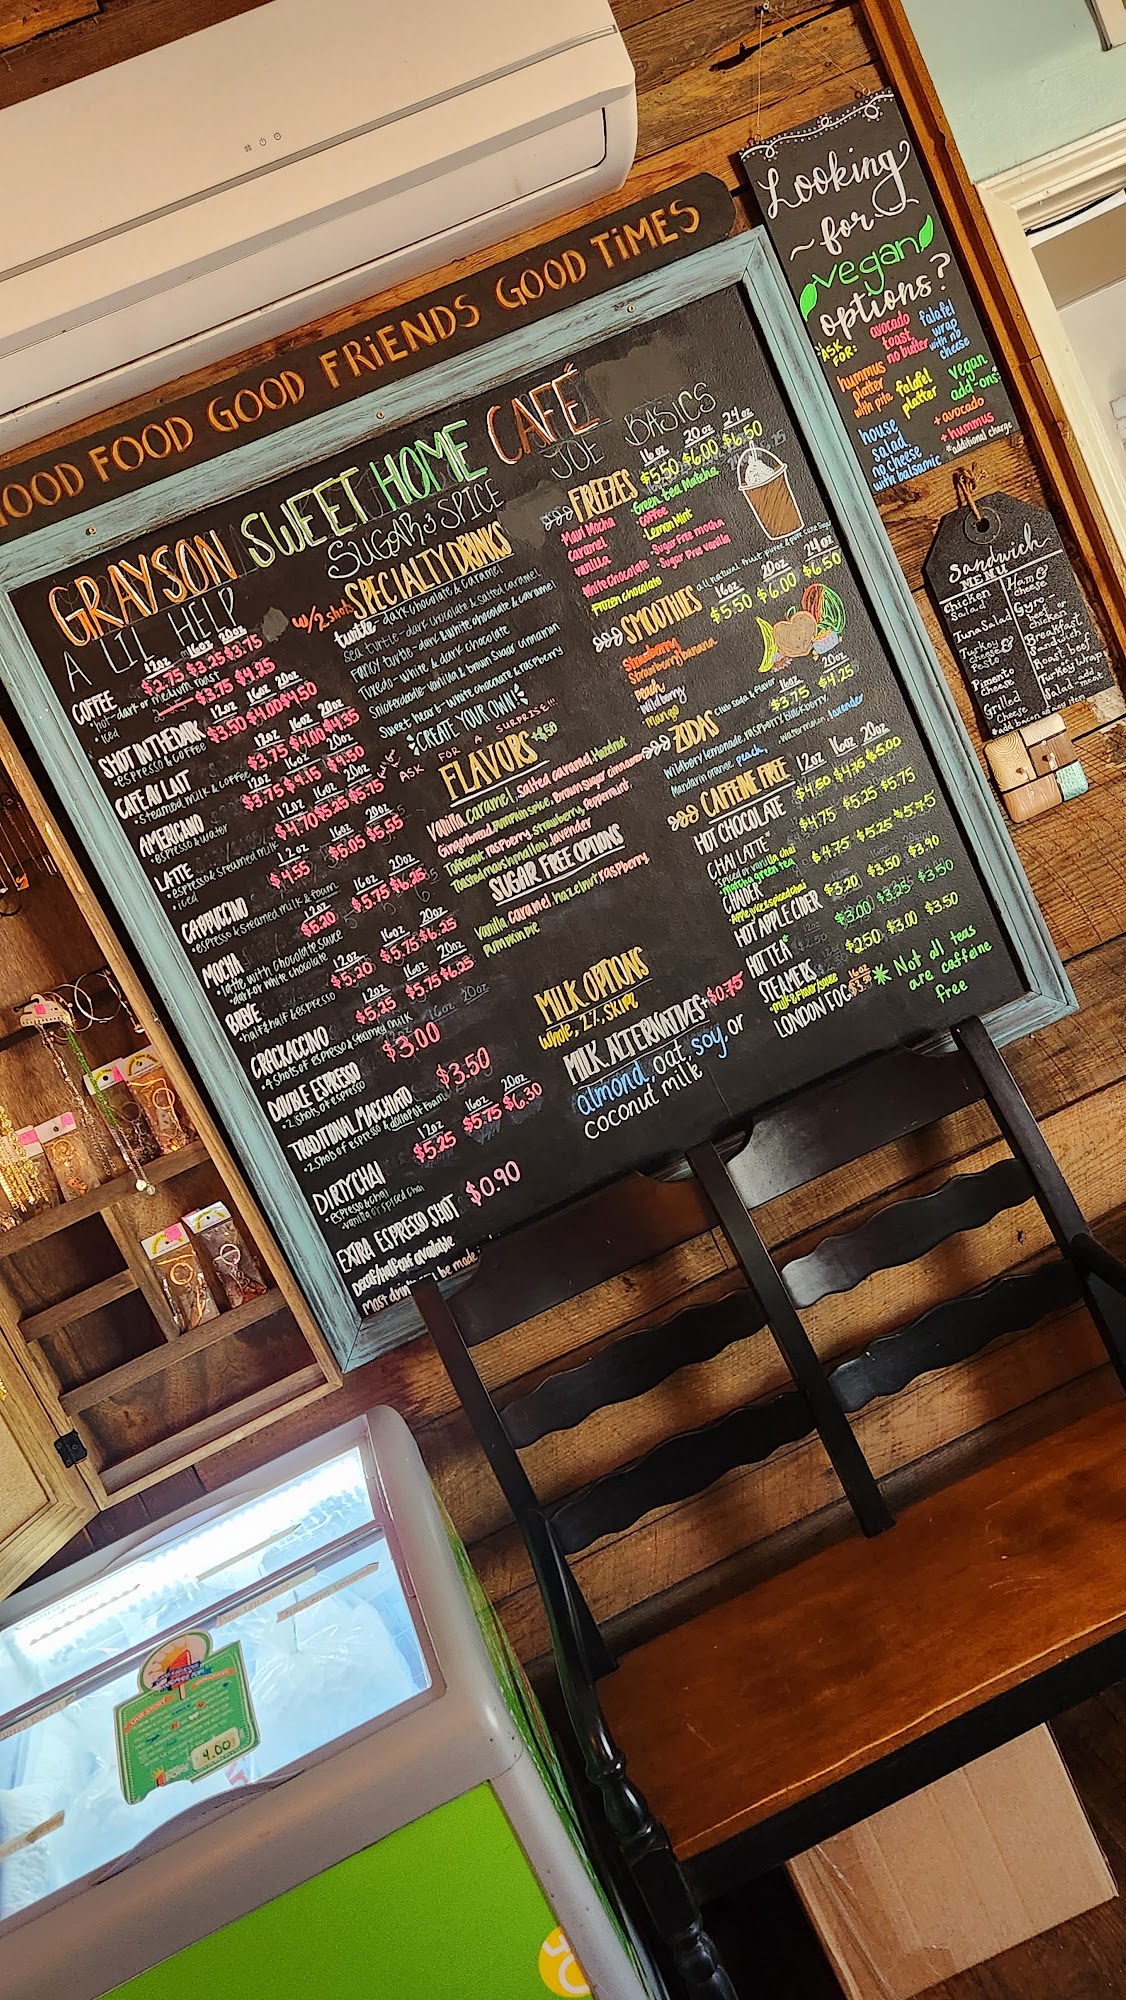 GOOD FOOD GOOD FRiENDS GOOD TiMES
GRAYSON SWEET HOME CAFÉ
A LIL HELP
12oz 16oz 20oz
COFFEE $2.75 $3.25 $3.75
•hot-dark or medium roast
•iced
$3.75 $4.25
12oz 16oz 20oz
SHOT IN THE DARK $3.50 $4.00 $4.50
•espresso & coffee
12oz 16oz 20oz
CAFE AU LAIT $3.75 $4.00 $4.35
•Steamed milk & coffee
12oz 16oz 20oz
AMERICANO $3.75 $4.15 $4.50
•espresso & water
12oz 16oz 20oz
LATTE $4.70 $5.25 $5.75
•espresso & steamed milk
•iced
12oz 16oz 20oz
CAPPUCCINO $4.55 $5.05 $5.55
•espresso & steamed milk & foam
12oz 16oz 20oz
MOCHA $5.20 $5.75 $6.25
•latte with chocolate sauce
•dark or white chocolate
12oz 16oz 20oz
BREVE $5.20 $5.75 $6.25
•half & half & espresso
12oz 16oz 20oz
CRACKACCINO $5.25 $5.75 $6.25
•4 shots of espresso & steamed milk
DOUBLE ESPRESSO $3.00
•2 shots of espresso
TRADITIONAL MACCHIATO $3.50
•2 shots of espresso & dollop of foam
12oz 16oz 20oz
DIRTY CHAI $5.25 $5.75 $6.30
•espresso & chai
•vanilla or spiced chai
EXTRA ESPRESSO SHOT $0.90
Decaf/half-caf available
Most drinks be made
SUGAR & SPICE
w/2 shots SPECIALTY DRINKS
turtle-dark chocolate & caramel
sea turtle-dark chocolate & salted caramel
Fancy turtle-dark & white chocolate & caramel
Tuxedo-white & dark chocolate
Snickerdoodle-vanilla & brown sugar cinnamon
Sweet heart-white chocolate & raspberry
CREATE YOUR OWN!
ASK FOR A SURPRISE!!!
FLAVORS +$.50
Vanilla Caramel, salted caramel, Hazelnut
Gingerbread, pumpkin spice, Brown sugar cinnamon
Toffeenut, raspberry, strawberry, peppermint,
Toasted marshmallow, lavender
SUGAR FREE OPTIONS
Vanilla caramel hazelnut, raspberry
Pumpkin pie
MILK OPTIONS
Whole, 2%, Skim
MILK ALTERNATIVES +$0.75
almond, oat, soy, or
coconut milk
JOE BASICS
16oz 20oz 24oz
FREEZES $5.50 $6.00 $6.50
Maui Mocha
Caramel
vanilla
White Chocolate
Frozen chocolate
Green tea Matcha
Coffee
Lemon Mint
Sugar Free mocha
Sugar Free vanilla
SMOOTHIES all natural fruit puree & pure cane sugar
16oz 20oz 24oz
$5.50 $6.00 $6.50
Strawberry
Strawberry banana
Peach
wildberry
Mango
ZODAS Club soda & flavor
16oz 20oz
$3.75 $4.25
Wildberry lemonade, raspberry, blackberry,
Mandarin orange, peach, watermelon, lavender
CAFFEINE FREE 12oz 16oz 20oz
HOT CHOCOLATE $4.50 $4.75 $5.00
CHAI LATTE* $4.75 $5.25 $5.75
•spiced or vanilla chai
•Matcha green tea
CHAIDER $4.75 $5.25 $5.75
•Apple juice & spiced chai
HOT APPLE CIDER $3.20 $3.50 $3.90
HOT TEA* $3.00 $3.25 $3.50
STEAMERS $2.50 $3.00 $3.50
•milk & flavor/sauce
LONDON FOG 16oz
* Not all teas
are caffeine
free
Looking
~for~
vegan
options?
ASK FOR:
avocado toast no butter
falafel wrap with no cheese
hummus platter with pita
falafel platter
vegan add-ons:*
+ avocado
+ hummus
*additional charge
house salad no cheese with balsamic
Sandwich
MENU
Chicken Salad
Tuna Salad
Turkey & cheese Pesto
Pimento Cheese
Grilled Cheese
Ham & cheese
Gyro-chicken or
Breakfast Sandwich
Roast beef
Turkey wrap
Salad-add meat
*add bacon to any item
OUR STORY
4.00
POPS